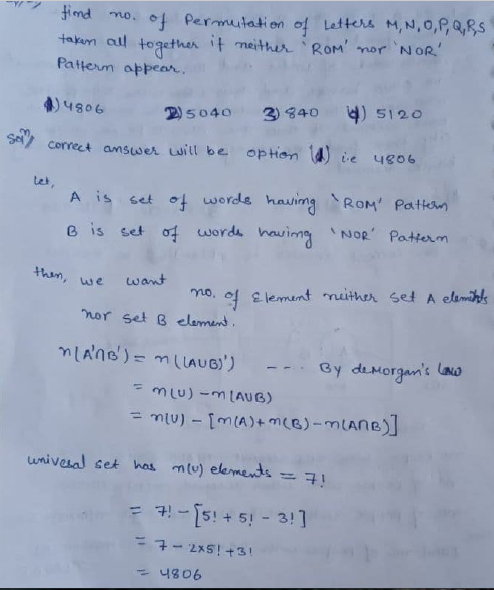 find no. of Permutation of Letters M,N,O,P,Q,R,S
taken all together if neither 'ROM' nor 'NOR'
Pattern appear.
1) 4806 2) 5040 3) 840 4) 5120
Solⁿ/ correct answer will be option (1) i.e 4806
let,
A is set of words having 'ROM' Pattern
B is set of words having 'NOR' Pattern
then, we want no. of Element neither set A elements
nor set B element.
n(A'∩B') = n((A∪B)') --- By demorgan's law
= n(U) - n(A∪B)
= n(U) - [n(A) + n(B) - n(A∩B)]
univesal set has n(U) elements = 7!
= 7! - [5! + 5! - 3!]
= 7 - 2×5! + 3!
= 4806